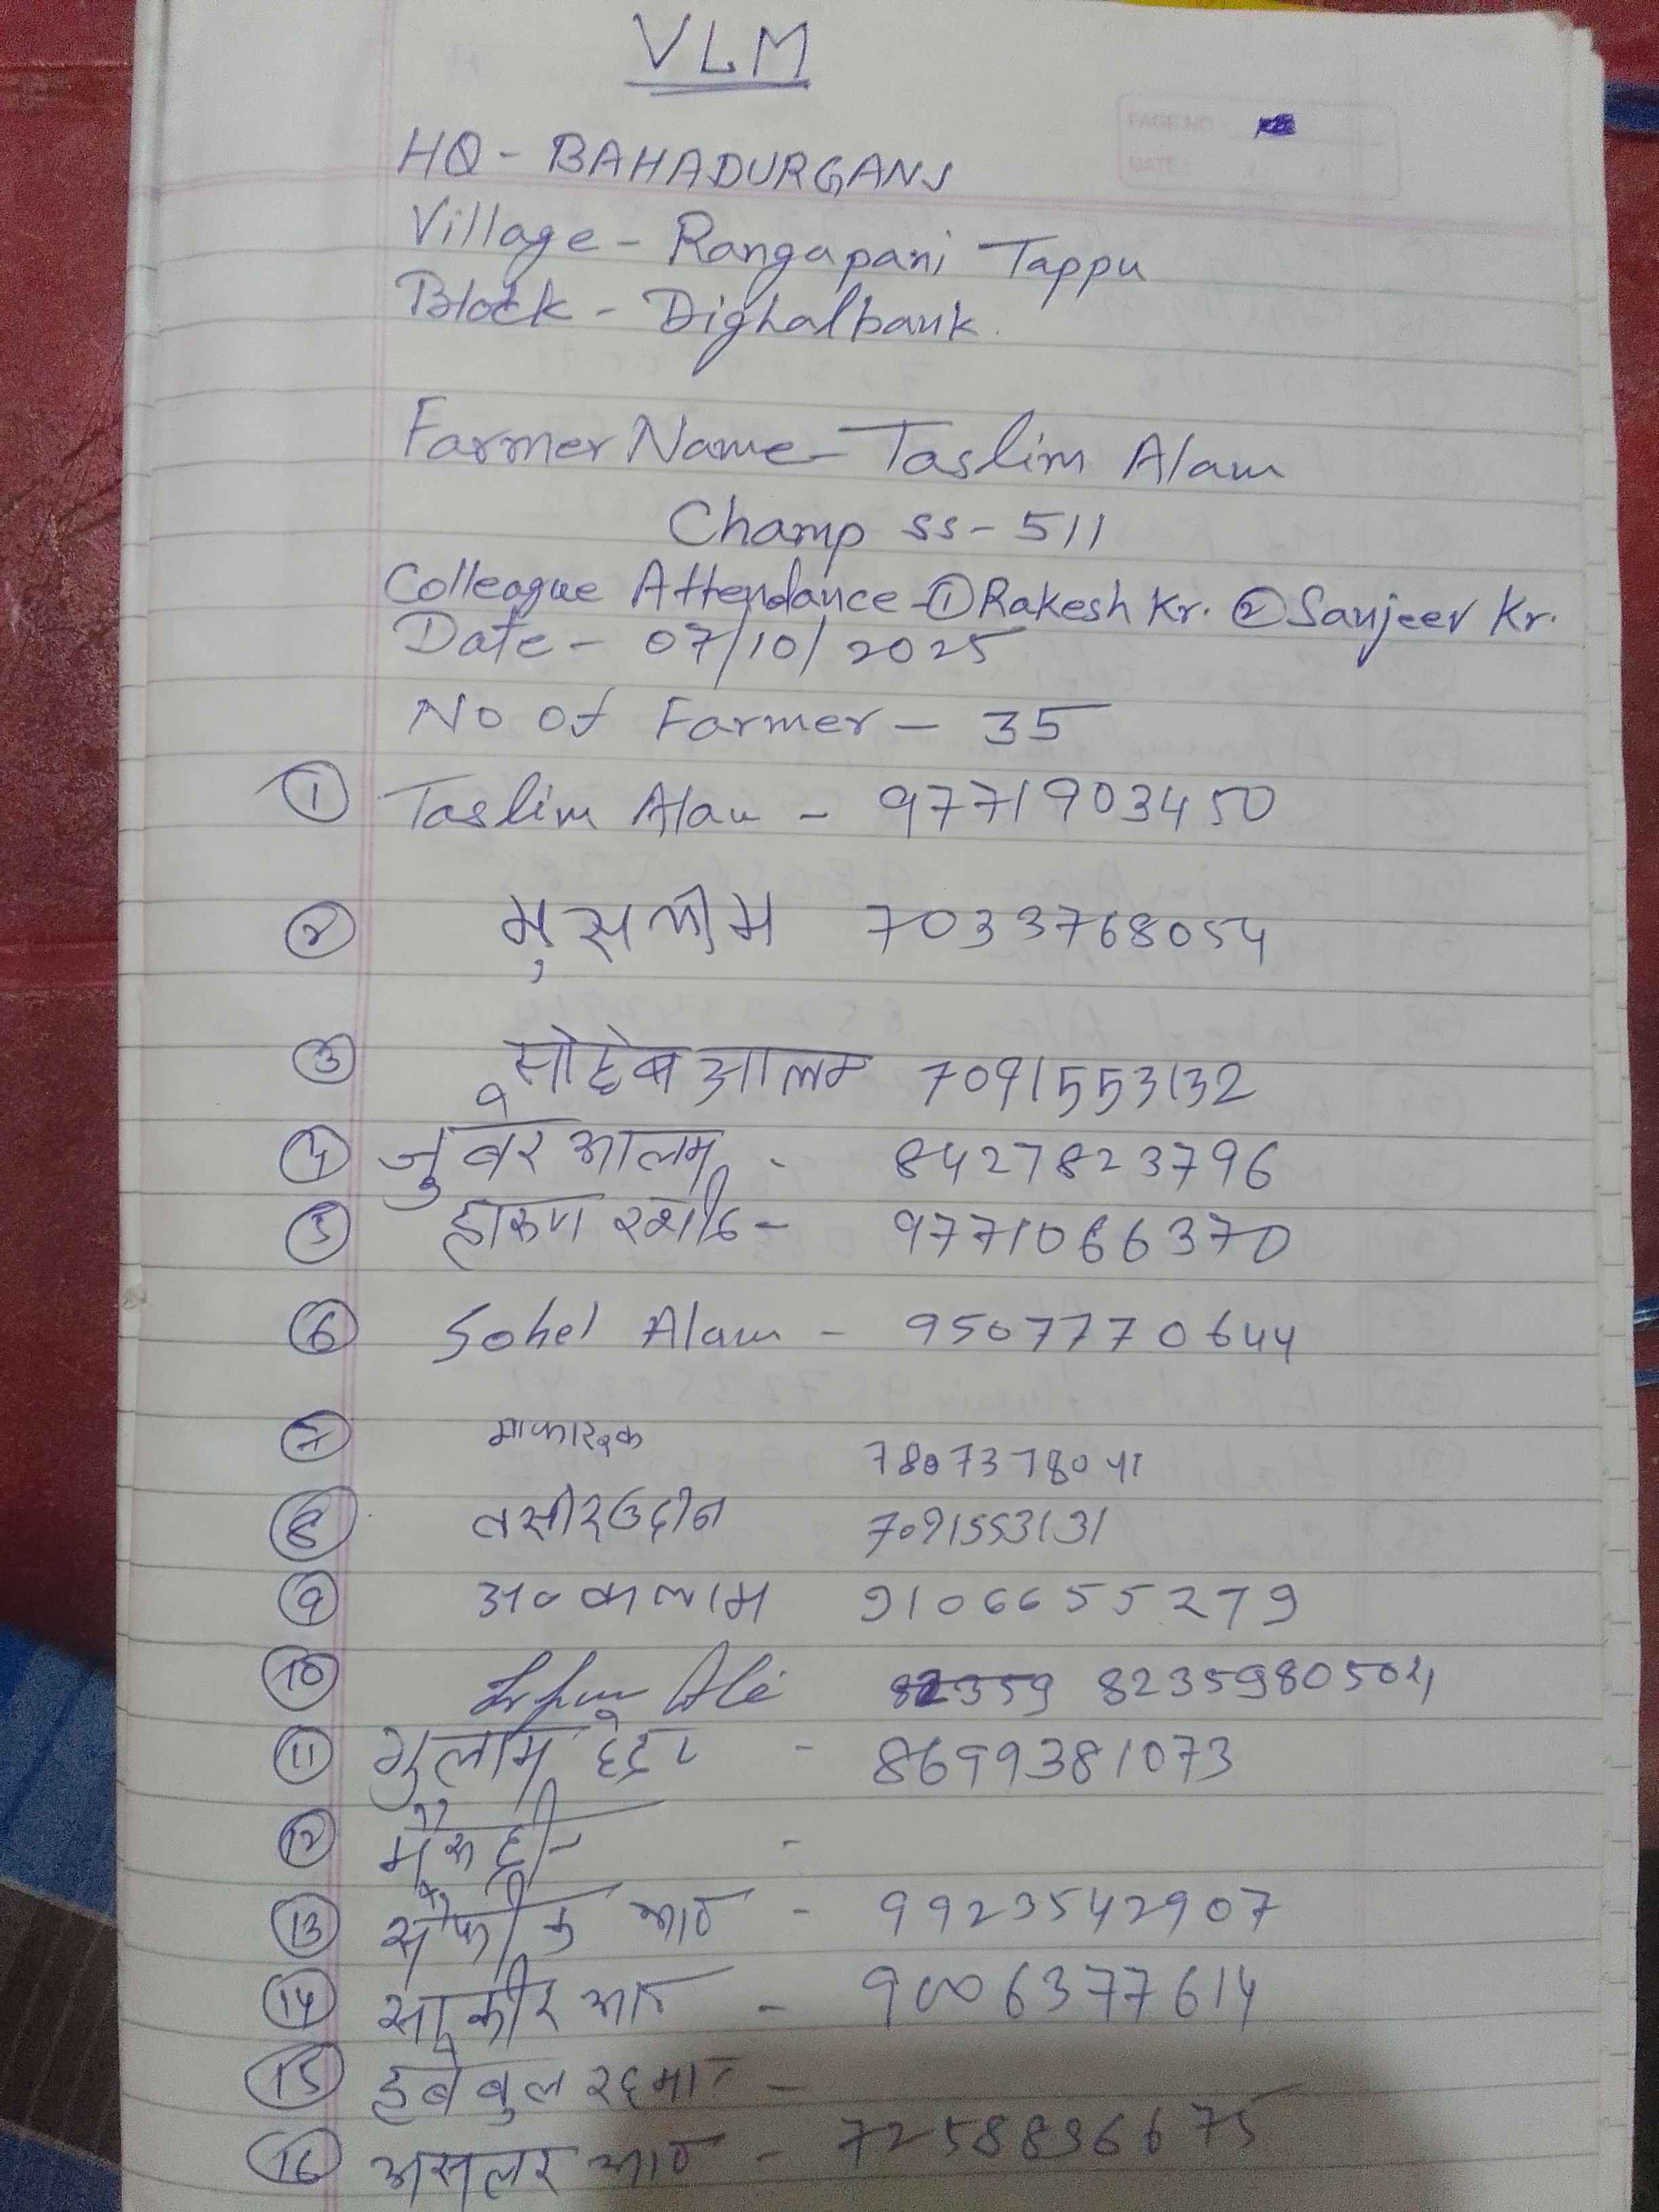 VLM
PAGE NO.
DATE:
HQ - BAHADURGANJ
Village - Rangapani Tappu
Block - Dighalbank.
Farmer Name - Taslim Alam
Champ SS-511
Colleague Attendance - ① Rakesh Kr. ② Sanjeev Kr.
Date - 07/10/2025
No Of Farmer - 35
① Taslim Alam - 9771903450
② मुसलीम 7033768054
③ सोहेब आलम 7091553132
④ जुबेर आलम - 8427823796
⑤ हारुण रशीद - 9771066370
⑥ Sohel Alam - 9507770644
⑦ 7807378041
⑧ तसीरउदीन 7091553131
⑨ अ० कलाम 9106655279
⑩ Irfan Ali 82359 8235980504
⑪ गुलाम हेदर - 8699381073
⑫ -
⑬ सफीक आ० - 9923542907
⑭ साकीर आ० - 9006377614
⑮ हबेबुल रहमान -
⑯ असलर आ० - 7258896675